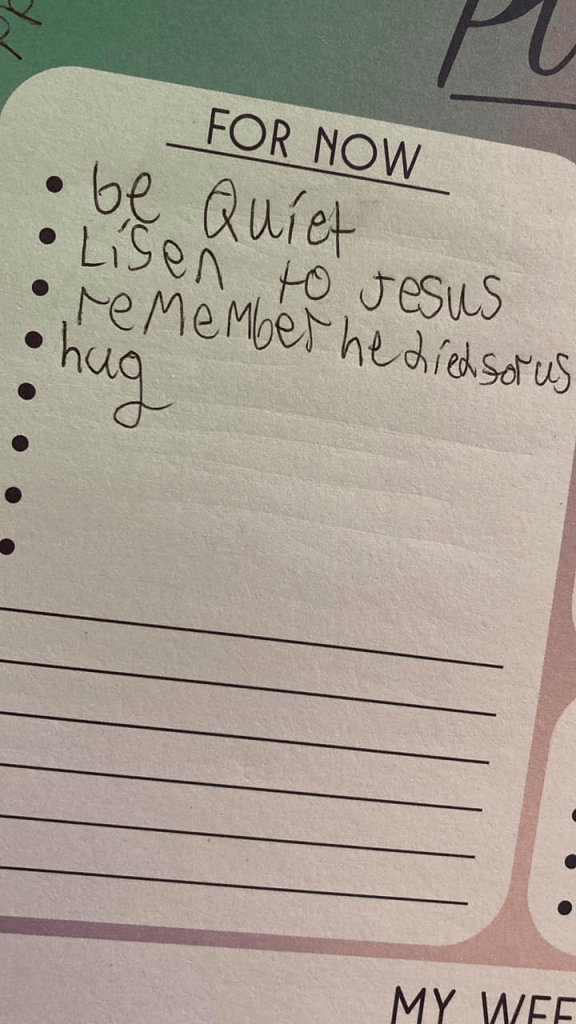 FOR NOW
be Quiet
Lisen to Jesus
remember he died sor us
hug
MY WEE